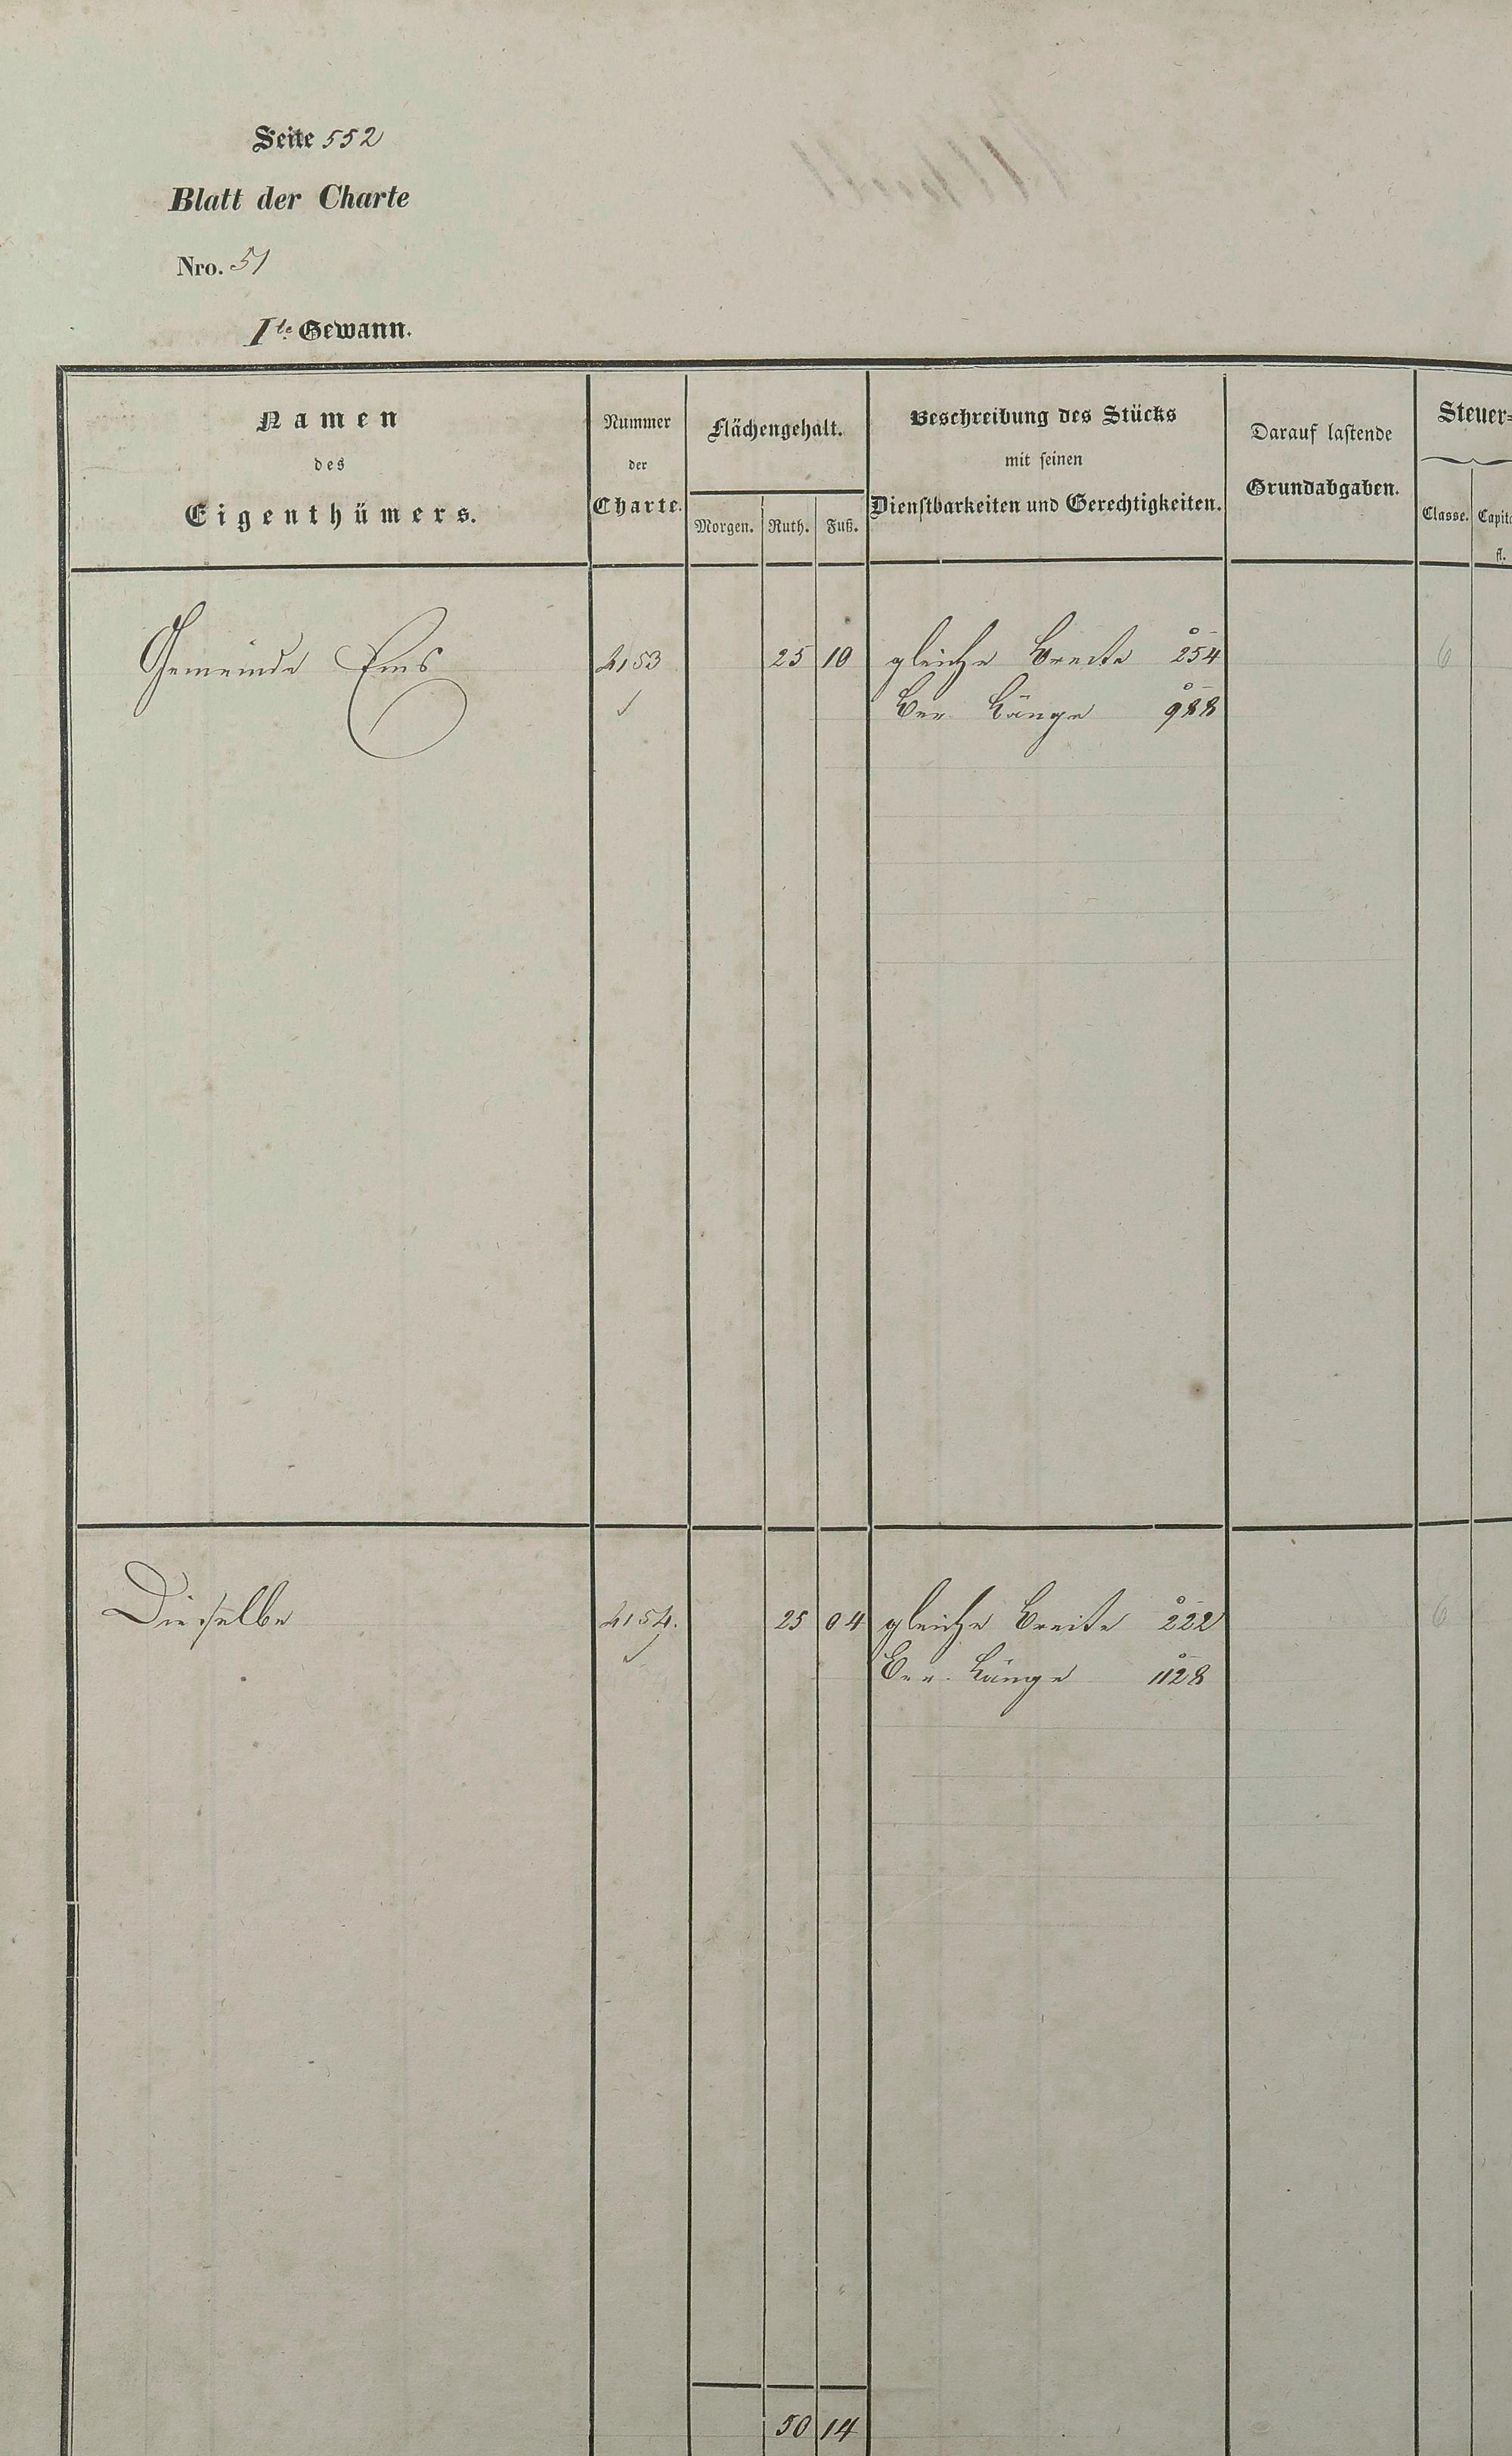 Seite 552
Blatt der Charte
Nro. 51
Ite Gewann.
Namen
des
Eigenthümers.
Nummer
der
Charte.
Flächengehalt.
Morgen. Ruth. Fuß.
Beschreibung des Stücks
mit seinen
Dienstbarkeiten und Gerechtigkeiten.
Darauf lastende
Grundabgaben.
Steuer=
Classe. Capit
fl.
Gemeinde Ems 4153 25 10 gleiche Breite 2°54 6
Ber. Länge 9°88
Dieselbe 4154. 25 04 gleiche Breite 2°22 6
Ber. Länge 11°28
50 14